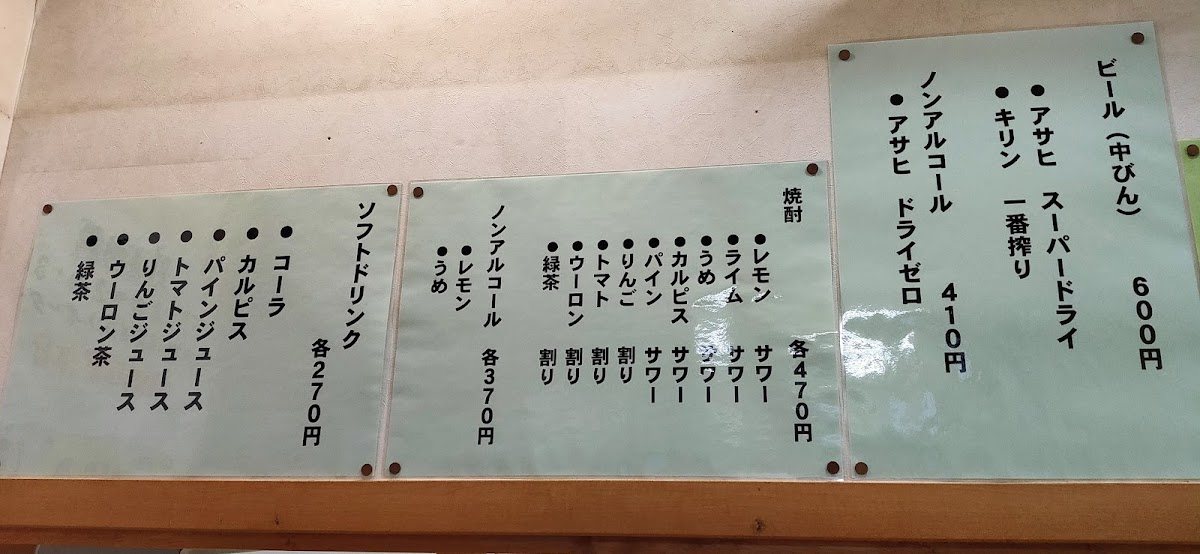 ビール（中びん） 600円
●アサヒ スーパードライ
●キリン 一番搾り
ノンアルコール 410円
●アサヒ ドライゼロ
焼酎 各470円
●レモン サワー
●ライム サワー
●うめ サワー
●カルピス サワー
●パイン サワー
●りんご 割り
●トマト 割り
●ウーロン 割り
●緑茶 割り
ノンアルコール 各370円
●レモン
●うめ
ソフトドリンク 各270円
●コーラ
●カルピス
●パインジュース
●トマトジュース
●りんごジュース
●ウーロン茶
●緑茶